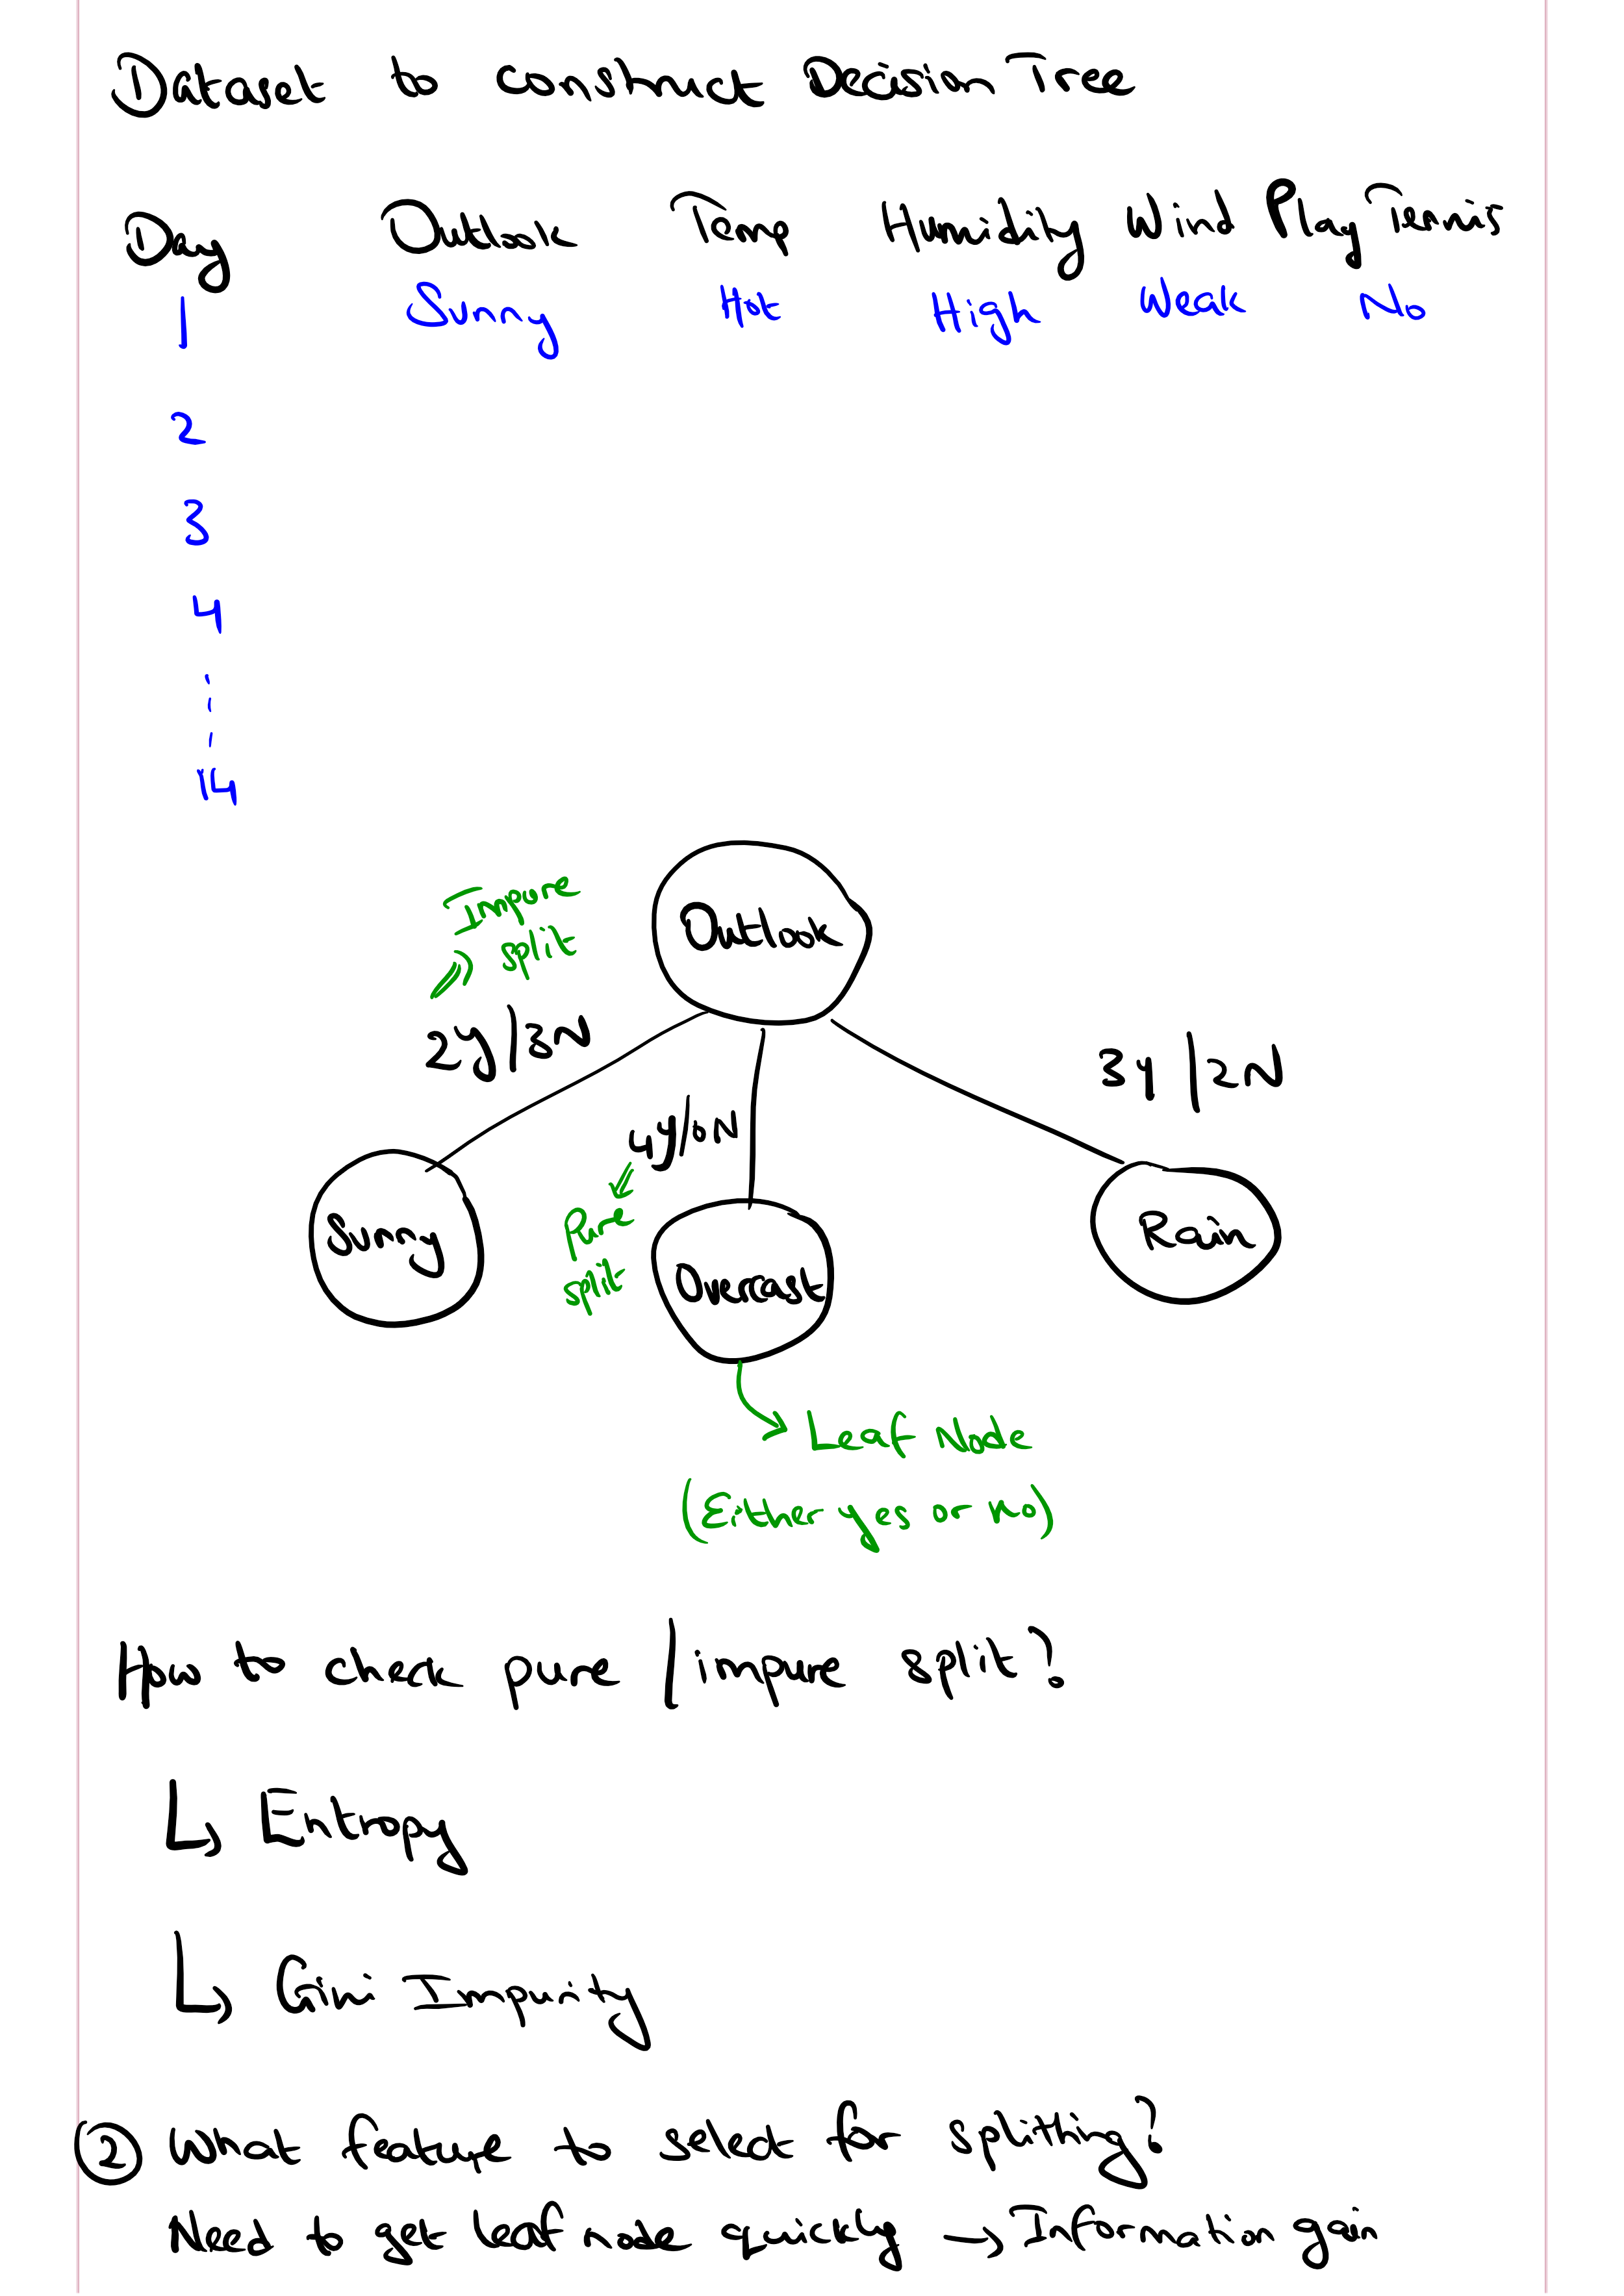 Dataset to construct Decision Tree
Day Outlook Temp Humidity Wind Play Tennis
1 Sunny Hot High Weak No
2
3
4
14
Impure
split
Outlook
2y/3N
3y/2N
4y/0N
Pure
split
Sunny
Overcast
Rain
Leaf Node
(Either yes or no)
How to check pure / impure split?
↳ Entropy
↳ Gini Impurity
② What feature to select for splitting?
Need to get leaf node quickly → Information gain